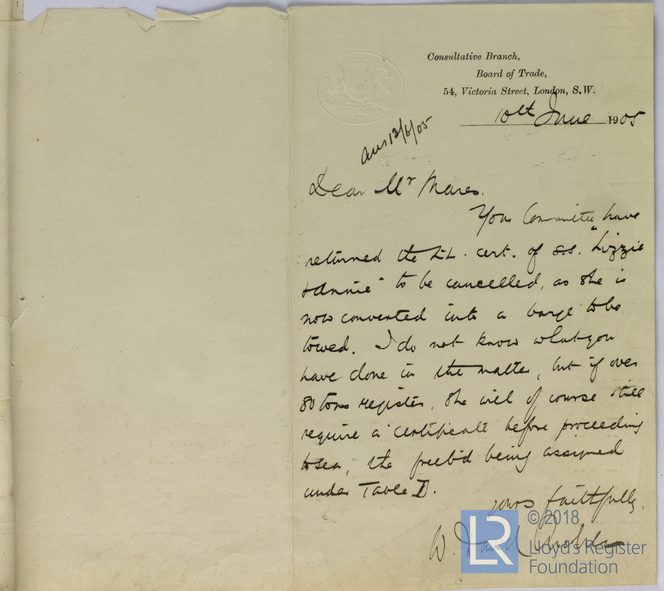 Consultative Branch,
Board of Trade,
54, Victoria Street, London, S.W.
10th June 1905
ans 13/6/05
Dear Mr Mares.
Your Committee have
returned the L.L. cert. of s.s. "Lizzie
& Annie" to be cancelled, as she is
now converted into a barge to be
towed. I do not know what you
have done in the matter, but if over
80 tons register, she will of course still
require a certificate before proceeding
to sea, the freeb'd being assigned
under Table D.
Yours faithfully.
W. David
LR
© 2018
Lloyd's Register
Foundation